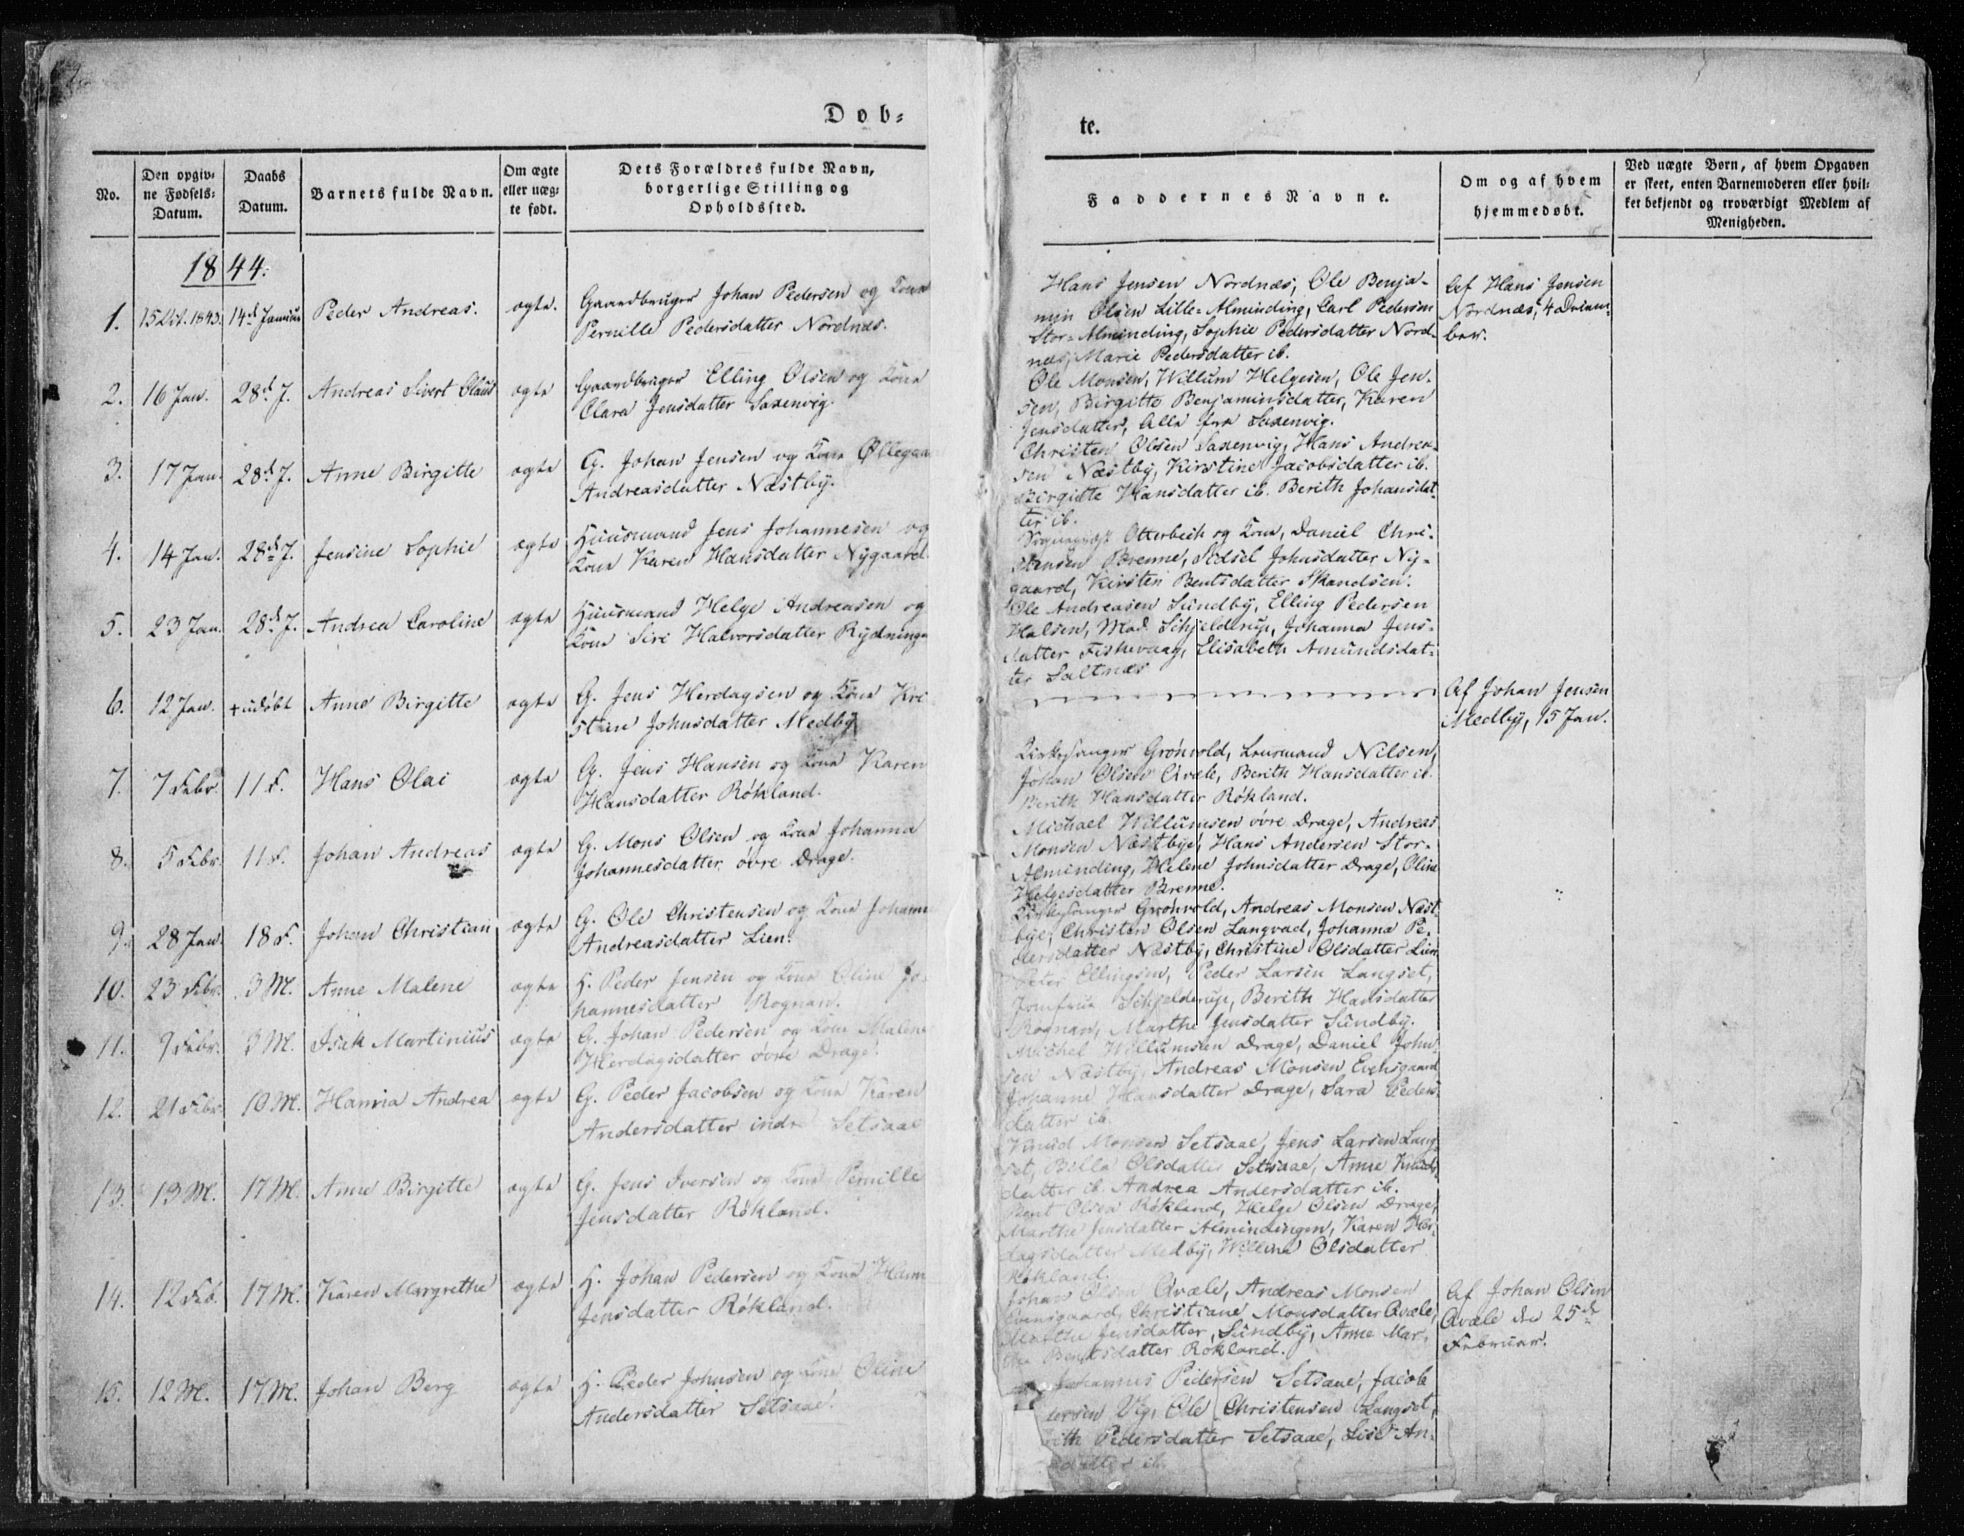 Døb=
No.
Den opgiv=
ne Fødsels=
Datum.
Daabs
Datum.
Barnets fulde Navn.
Om ægte
eller uæg=
te født.
Dets Forældres fulde Navn,
borgerlige Stilling og
Opholdssted.
1844.
1. 15 Oct. 1843. 14de Januar Peder Andreas. ægte. Gaardbruger Johan Pedersen og Kone
Pernille Pedersdatter Nordnæs.
2. 16 Jan. 28de J. Andreas Sivert Olaus ægte Gaardbruger Elling Olsen og Kone
Olara Jensdatter Saxenvig.
3. 17 Jan. 28de J. Anne Birgitte ægte G. Johan Jensen og Kone Øllegaa
Andreasdatter Næstby.
4. 14 Jan. 28de J. Jensine Sophie ægte Huusmand Jens Johannesen og
Kone Karen Hansdatter Nygaard.
5. 23 Jan. 28de J. Andrea Caroline ægte Huusmand Helge Andreasen og
Kone Siri Halvorsdatter Rydninge
6. 12 Jan. + udøbt Anne Birgitte ægte G. Jens Herdagsen og Kone Kri
stine Johnsdatter Medby
7. 7 Febr. 11 F. Hans Olai ægte G. Jens Hansen og Kone Karen
Hansdatter Røkland.
8. 5 Febr. 11 F. Johan Andreas ægte G. Mons Olsen og Kone Johanna
Johannesdatter øvre Drage.
9. 28 Jan. 18 F. Johan Christian ægte G. Ole Christensen og Kone Johanne
Andreasdatter Lien.
10. 23 Febr. 3 M. Anne Malene ægte H. Peder Jensen og Kone Oline Jo-
hannesdatter Rognan.
11. 9 Febr. 3 M. Isak Martinius ægte G. Johan Pedersen og Kone Malene
Herdagsdatter øvre Drage.
12. 21 Febr. 10 M. Hanna Andrea ægte G. Peder Jacobsen og Kone Karen
Andersdatter indre Setsaae
13. 13 M. 17 M. Anne Birgitte ægte G. Jens Iversen og Kone Pernille
Jensdatter Røkland.
14. 12 Feb. 17 M. Karen Margrethe ægte H. Johan Pedersen og Kone Hann
Jensdatter Røkland.
15. 12 M. 17 M. Johan Berg ægte H. Peder Johnsen og Kone Oline
Andersdatter Setsaae.
te.
Faddernes Navne.
Om og af hvem
hjemmedøbt.
Ved uægte Børn, af hvem Opgaven
er skeet, enten Barnemoderen eller hvil=
ket bekjendt og troværdigt Medlem af
Menigheden.
Hans Jensen Nordnæs, Ole Benja-
min Olsen Lille-Alminding, Carl Pedersen
Stor-Alminding, Sophie Pedersdatter Nord-
næs, Marie Pedersdatter ib.
Af Hans Jensen
Nordnæs, 4 Decem-
ber.
Ole Monsen, Willum Helgesen, Ole Jen-
sen, Birgitte Benjaminsdatter, Karen
Jensdatter, Alle fra Saxenvig.
Christen Olsen Saxenvig, Hans Andrea-
sen Næstby, Kirstine Jacobsdatter ib.
Birgitte Hansdatter ib. Berith Johansdat-
ter ib.
Otterbech og Kone, Daniel Chri-
stensen Brenne, Sidsel Johnsdatter Ny-
gaard, Kirsten Bentsdatter Skandsen.
Ole Andreasen Sundby, Elling Pedersen
Halsen, Mad. Schjelderup, Johanna Jens-
datter Fiskevaag, Elisabeth Amundsdat-
ter Saltnæs
Af Johan Jensen
Medby, 15 Jan.
Kirkesanger Grønvold, Lensmand Nilsen,
Johan Olsen Qvæle, Berith Hansdatter ib.
Berith Hansdatter Røkland.
Michael Willumsen øvre Drage, Andreas
Monsen Næstbye, Hans Andersen Stor-
Alminding, Helene Johnsdatter Drage, Oline
Helgesdatter Brenne.
Kirkesanger Grønvold, Andreas Monsen Næst
bye, Christen Olsen Langvad, Johanna Pe-
dersdatter Næstby, Christine Olsdatter Lien
Peter Ellingsen, Peder Larsen Langset,
Jomfrue Schjelderup, Berith Hansdatter
Rognan, Marthe Jensdatter Sundby.
Michel Willumsen Drage, Daniel John-
sen Næstby, Andreas Monsen Evensgaard
Johanne Hansdatter Drage, Sara Peders
datter ib.
Knud Monsen Setsaae, Jens Larsen Lang
set, Bella Olsdatter Setsaae, Anne Knuds
datter ib. Andrea Andersdatter ib.
Bent Olsen Røkland, Helge Olsen Drage,
Marthe Jensdatter Almindingen, Karen Her-
dagsdatter Medby, Willine Olsdatter
Røkland.
Johan Olsen Qvæle, Andreas Monsen
Evensgaard, Christiane Monsdatter Qvæle,
Marthe Jensdatter, Sundby, Anne Mar-
the Bentsdatter Røkland.
Af Johan Olsen
Qvæle den 25de
Februar.
Johannes Pedersen Setsaae, Jacob
dersen Vig, Ole Christensen Langset,
rith Pedersdatter Setsaae, Lise An-
datter ib.